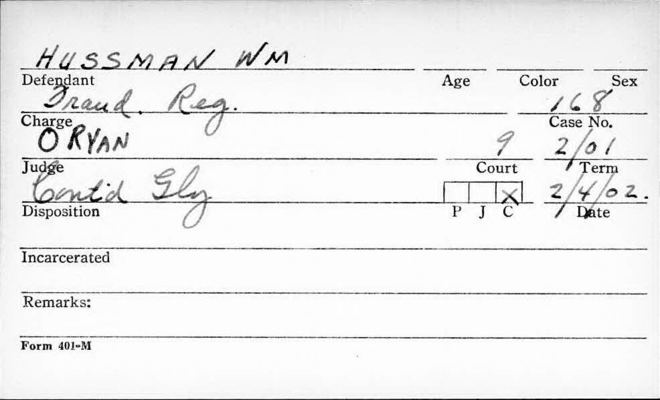 HUSSMAN WM
Defendant Age Color Sex
Fraud. Reg. 168
Charge Case No.
O RYAN 9 2/01
Judge Court Term
Cont'd Gly X 2/4/02.
Disposition P J C Date
Incarcerated
Remarks:
Form 401-M